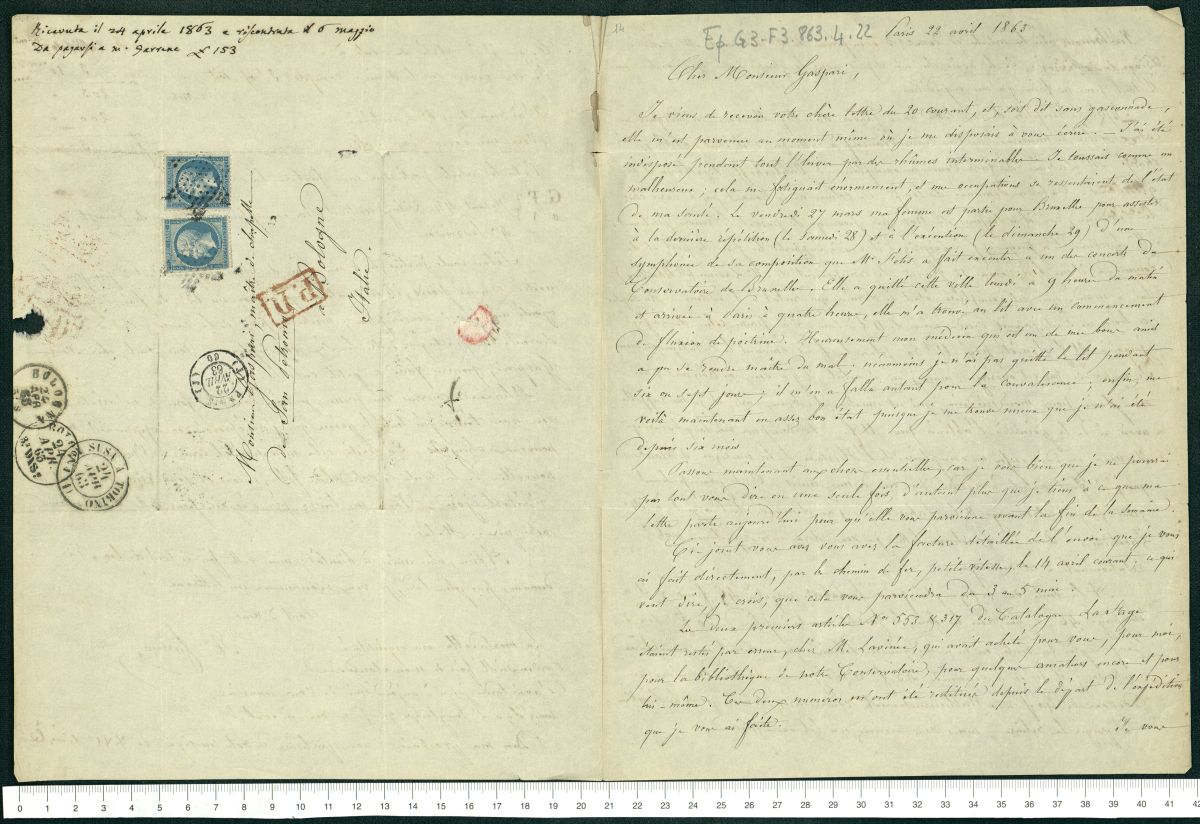 Ricevuta il 24 aprile 1863 e riscontrata il 6 maggio
Da pagarsi a m. Farrenc £ 153
Monsieur Gaspari, maître de chapelle
de San Petronio
à Bologne
Italie.
P.D.
PARIS
22
AVRIL
63
(60)
BOLOGNA
24
APR
63
SUSA A TORINO
24
APR
63
14
Ep. G3-F3.863.4.22
Paris 22 avril 1863
Cher Monsieur Gaspari,
Je viens de recevoir votre chère lettre du 20 courant, et, soit dit sans gasconnade,
elle m'est parvenue au moment même où je me disposais à vous écrire. — J'ai été
indisposé pendant tout l'hiver par des rhûmes interminables. Je toussais comme un
malheureux ; cela me fatiguait énormément, et mes occupations se ressentaient de l'état
de ma santé. Le vendredi 27 mars ma femme est partie pour Bruxelles pour assister
à la dernière répétition (le samedi 28) et à l'exécution (le dimanche 29) d'une
symphonie de sa composition que Mr Fétis a fait exécuter à un des concerts du
Conservatoire de Bruxelles. Elle a quitté cette ville lundi à 9 heures du matin
et arrivée à Paris à quatre heures, elle m'a trouvé au lit avec un commencement
de fluxion de poitrine. Heureusement mon médecin qui est un de mes bons amis
a pu se rendre maître du mal ; néanmoins je n'ai pas quitté le lit pendant
six ou sept jours ; il m'en a fallu autant pour la convalescence ; enfin, me
voilà maintenant en assez bon état puisque je me trouve mieux que je n'ai été
depuis six mois
Passons maintenant aux choses essentielles, car je vois bien que je ne pourrai
pas tout vous dire en une seule fois, d'autant plus que je tiens à ce que ma
lettre parte aujourd'hui pour qu'elle vous parvienne avant la fin de la semaine.
Ci-joint vous avez vous avez la facture détaillée de l'envoi que je vous
ai fait directement, par le chemin de fer, petite vitesse, le 14 avril courant, ce qui
veut dire, je crois, que cela vous parviendra du 3 au 5 mai.
Les deux premiers articles Nos 553 & 317 du Catalogue Lartage
étaient restés par erreur, chez M. Lavinée, qui avait acheté pour vous, pour moi,
pour la bibliothèque de notre Conservatoire, pour quelques amateurs encore et pour
lui-même. Ces deux numéros m'ont été restitués depuis le départ de l'expédition
que je vous ai faite.
Je vous
0 1 2 3 4 5 6 7 8 9 10 11 12 13 14 15 16 17 18 19 20 21 22 23 24 25 26 27 28 29 30 31 32 33 34 35 36 37 38 39 40 41 42